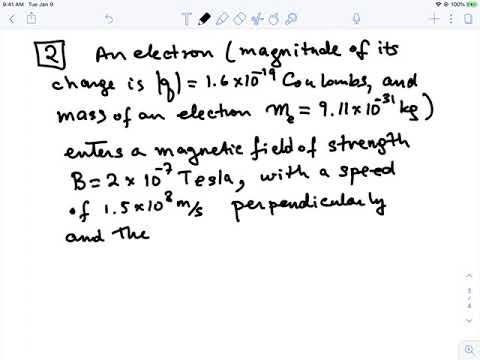 9:41 AM Tue Jan 9
100%
2 An electron (magnitude of its
charge is |q| = 1.6×10⁻¹⁹ Coulombs, and
mass of an electron mₑ = 9.11×10⁻³¹ kg)
enters a magnetic field of strength
B = 2 × 10⁻⁷ Tesla, with a speed
of 1.5×10⁸ m/s perpendicularly
and the
5
/
4